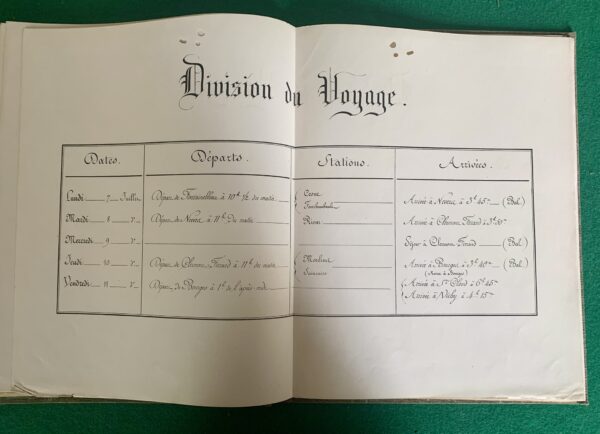 Division du Voyage.
Dates. Départs. Stations. Arrivées.
Lundi 7 Juillet Départ de Fontainebleau à 10h ½ du matin Cosne Arrivée à Nevers à 3h 45m (Bal)
Mardi 8 do Départ de Nevers à 11h du matin Riom Arrivée à Clermont Ferrand à 3h 30m
Mercredi 9 do Séjour à Clermont Ferrand (Bal)
Jeudi 10 do Départ de Clermont Ferrand à 11h du matin Moulins Arrivée à Bourges à 3h 40m (Bal)
Saincaize
Vendredi 11 do Départ de Bourges à 1h de l'après midi Arrivée à St Cloud à 6h 45m
Arrivée à Vichy à 4h 15m